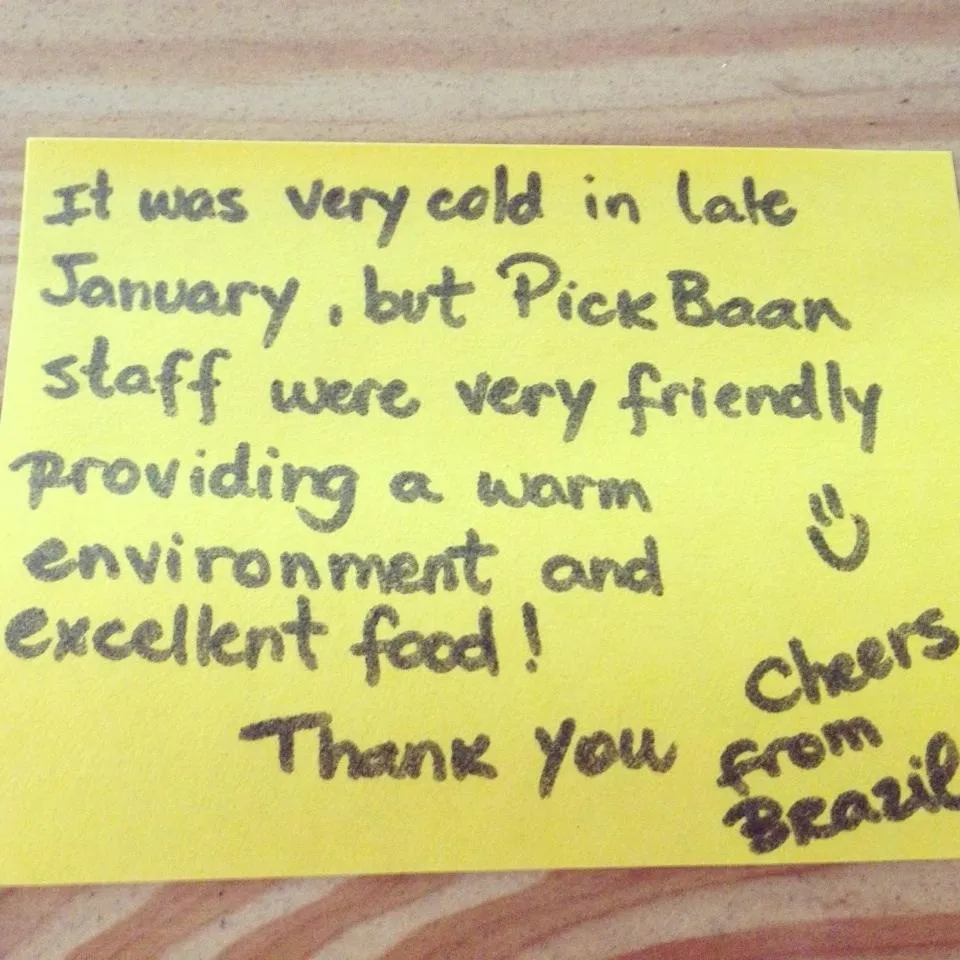 It was very cold in late
January, but Pick Baan
staff were very friendly
providing a warm
environment and
excellent food!
Thank you
Cheers
from
Brazil